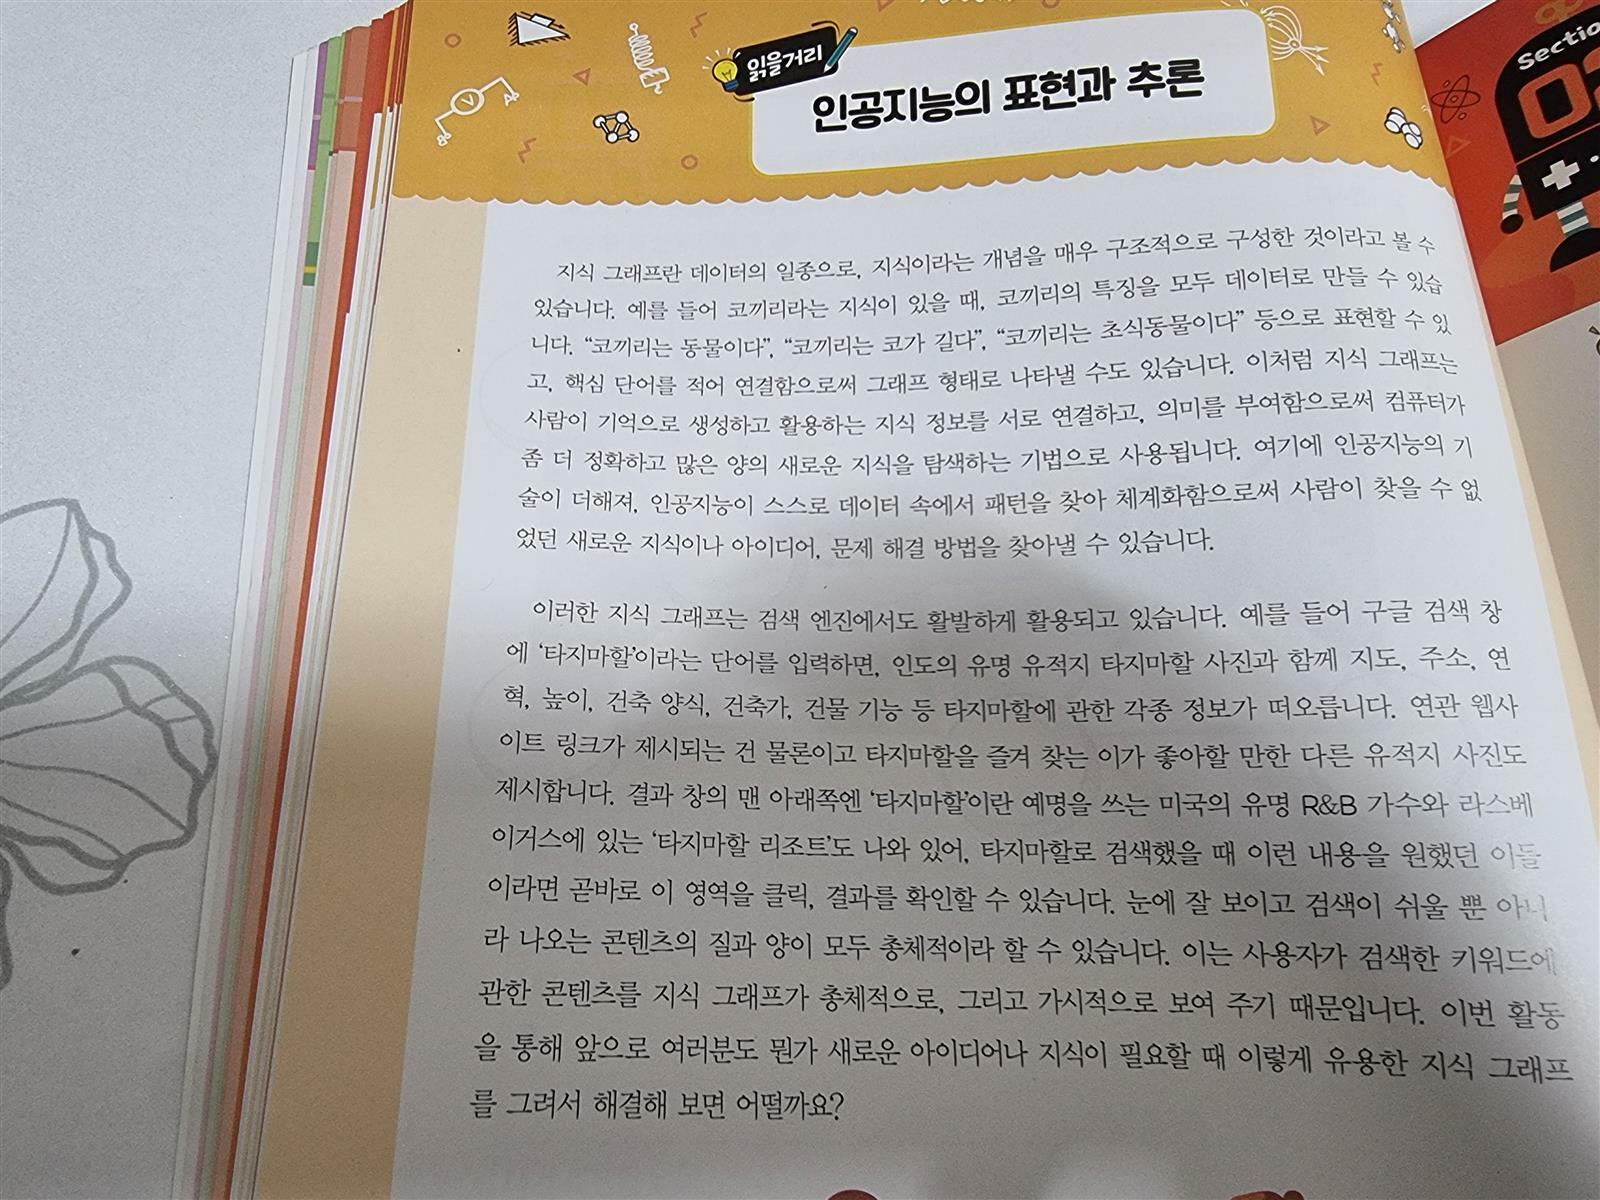 읽을거리
인공지능의 표현과 추론
지식 그래프란 데이터의 일종으로, 지식이라는 개념을 매우 구조적으로 구성한 것이라고 볼 수
있습니다. 예를 들어 코끼리라는 지식이 있을 때, 코끼리의 특징을 모두 데이터로 만들 수 있습
니다. “코끼리는 동물이다”, “코끼리는 코가 길다”, “코끼리는 초식동물이다” 등으로 표현할 수 있
고, 핵심 단어를 적어 연결함으로써 그래프 형태로 나타낼 수도 있습니다. 이처럼 지식 그래프는
사람이 기억으로 생성하고 활용하는 지식 정보를 서로 연결하고, 의미를 부여함으로써 컴퓨터가
좀 더 정확하고 많은 양의 새로운 지식을 탐색하는 기법으로 사용됩니다. 여기에 인공지능의 기
술이 더해져, 인공지능이 스스로 데이터 속에서 패턴을 찾아 체계화함으로써 사람이 찾을 수 없
었던 새로운 지식이나 아이디어, 문제 해결 방법을 찾아낼 수 있습니다.
이러한 지식 그래프는 검색 엔진에서도 활발하게 활용되고 있습니다. 예를 들어 구글 검색 창
에 ‘타지마할’이라는 단어를 입력하면, 인도의 유명 유적지 타지마할 사진과 함께 지도, 주소, 연
혁, 높이, 건축 양식, 건축가, 건물 기능 등 타지마할에 관한 각종 정보가 떠오릅니다. 연관 웹사
이트 링크가 제시되는 건 물론이고 타지마할을 즐겨 찾는 이가 좋아할 만한 다른 유적지 사진도
제시합니다. 결과 창의 맨 아래쪽엔 ‘타지마할’이란 예명을 쓰는 미국의 유명 R&B 가수와 라스베
이거스에 있는 ‘타지마할 리조트’도 나와 있어, 타지마할로 검색했을 때 이런 내용을 원했던 이들
이라면 곧바로 이 영역을 클릭, 결과를 확인할 수 있습니다. 눈에 잘 보이고 검색이 쉬울 뿐 아니
라 나오는 콘텐츠의 질과 양이 모두 총체적이라 할 수 있습니다. 이는 사용자가 검색한 키워드에
관한 콘텐츠를 지식 그래프가 총체적으로, 그리고 가시적으로 보여 주기 때문입니다. 이번 활동
을 통해 앞으로 여러분도 뭔가 새로운 아이디어나 지식이 필요할 때 이렇게 유용한 지식 그래프
를 그려서 해결해 보면 어떨까요?